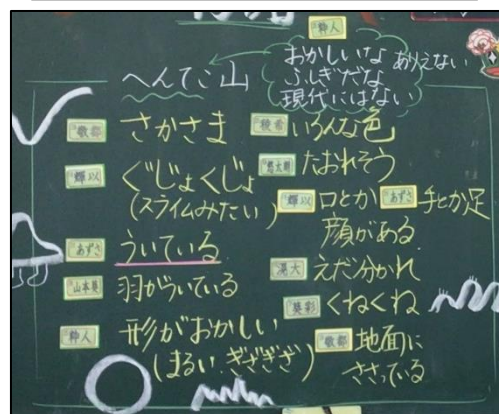 粋人
おかしいな
ふしぎだな
現代にはない
ありえない
へんてこ山
敬都 さかさま
輝以 ぐじょぐじょ
(スライムみたい)
あずさ ういている
山本葵 羽がういている
粋人 形がおかしい
(まるい.ぎざぎざ)
いろんな色
悠太郎 たおれそう
輝以 口とか あずさ 手とか足
顔がある
滉大 えだ分かれ
葵彩 くねくね
敬都 地面に
ささっている